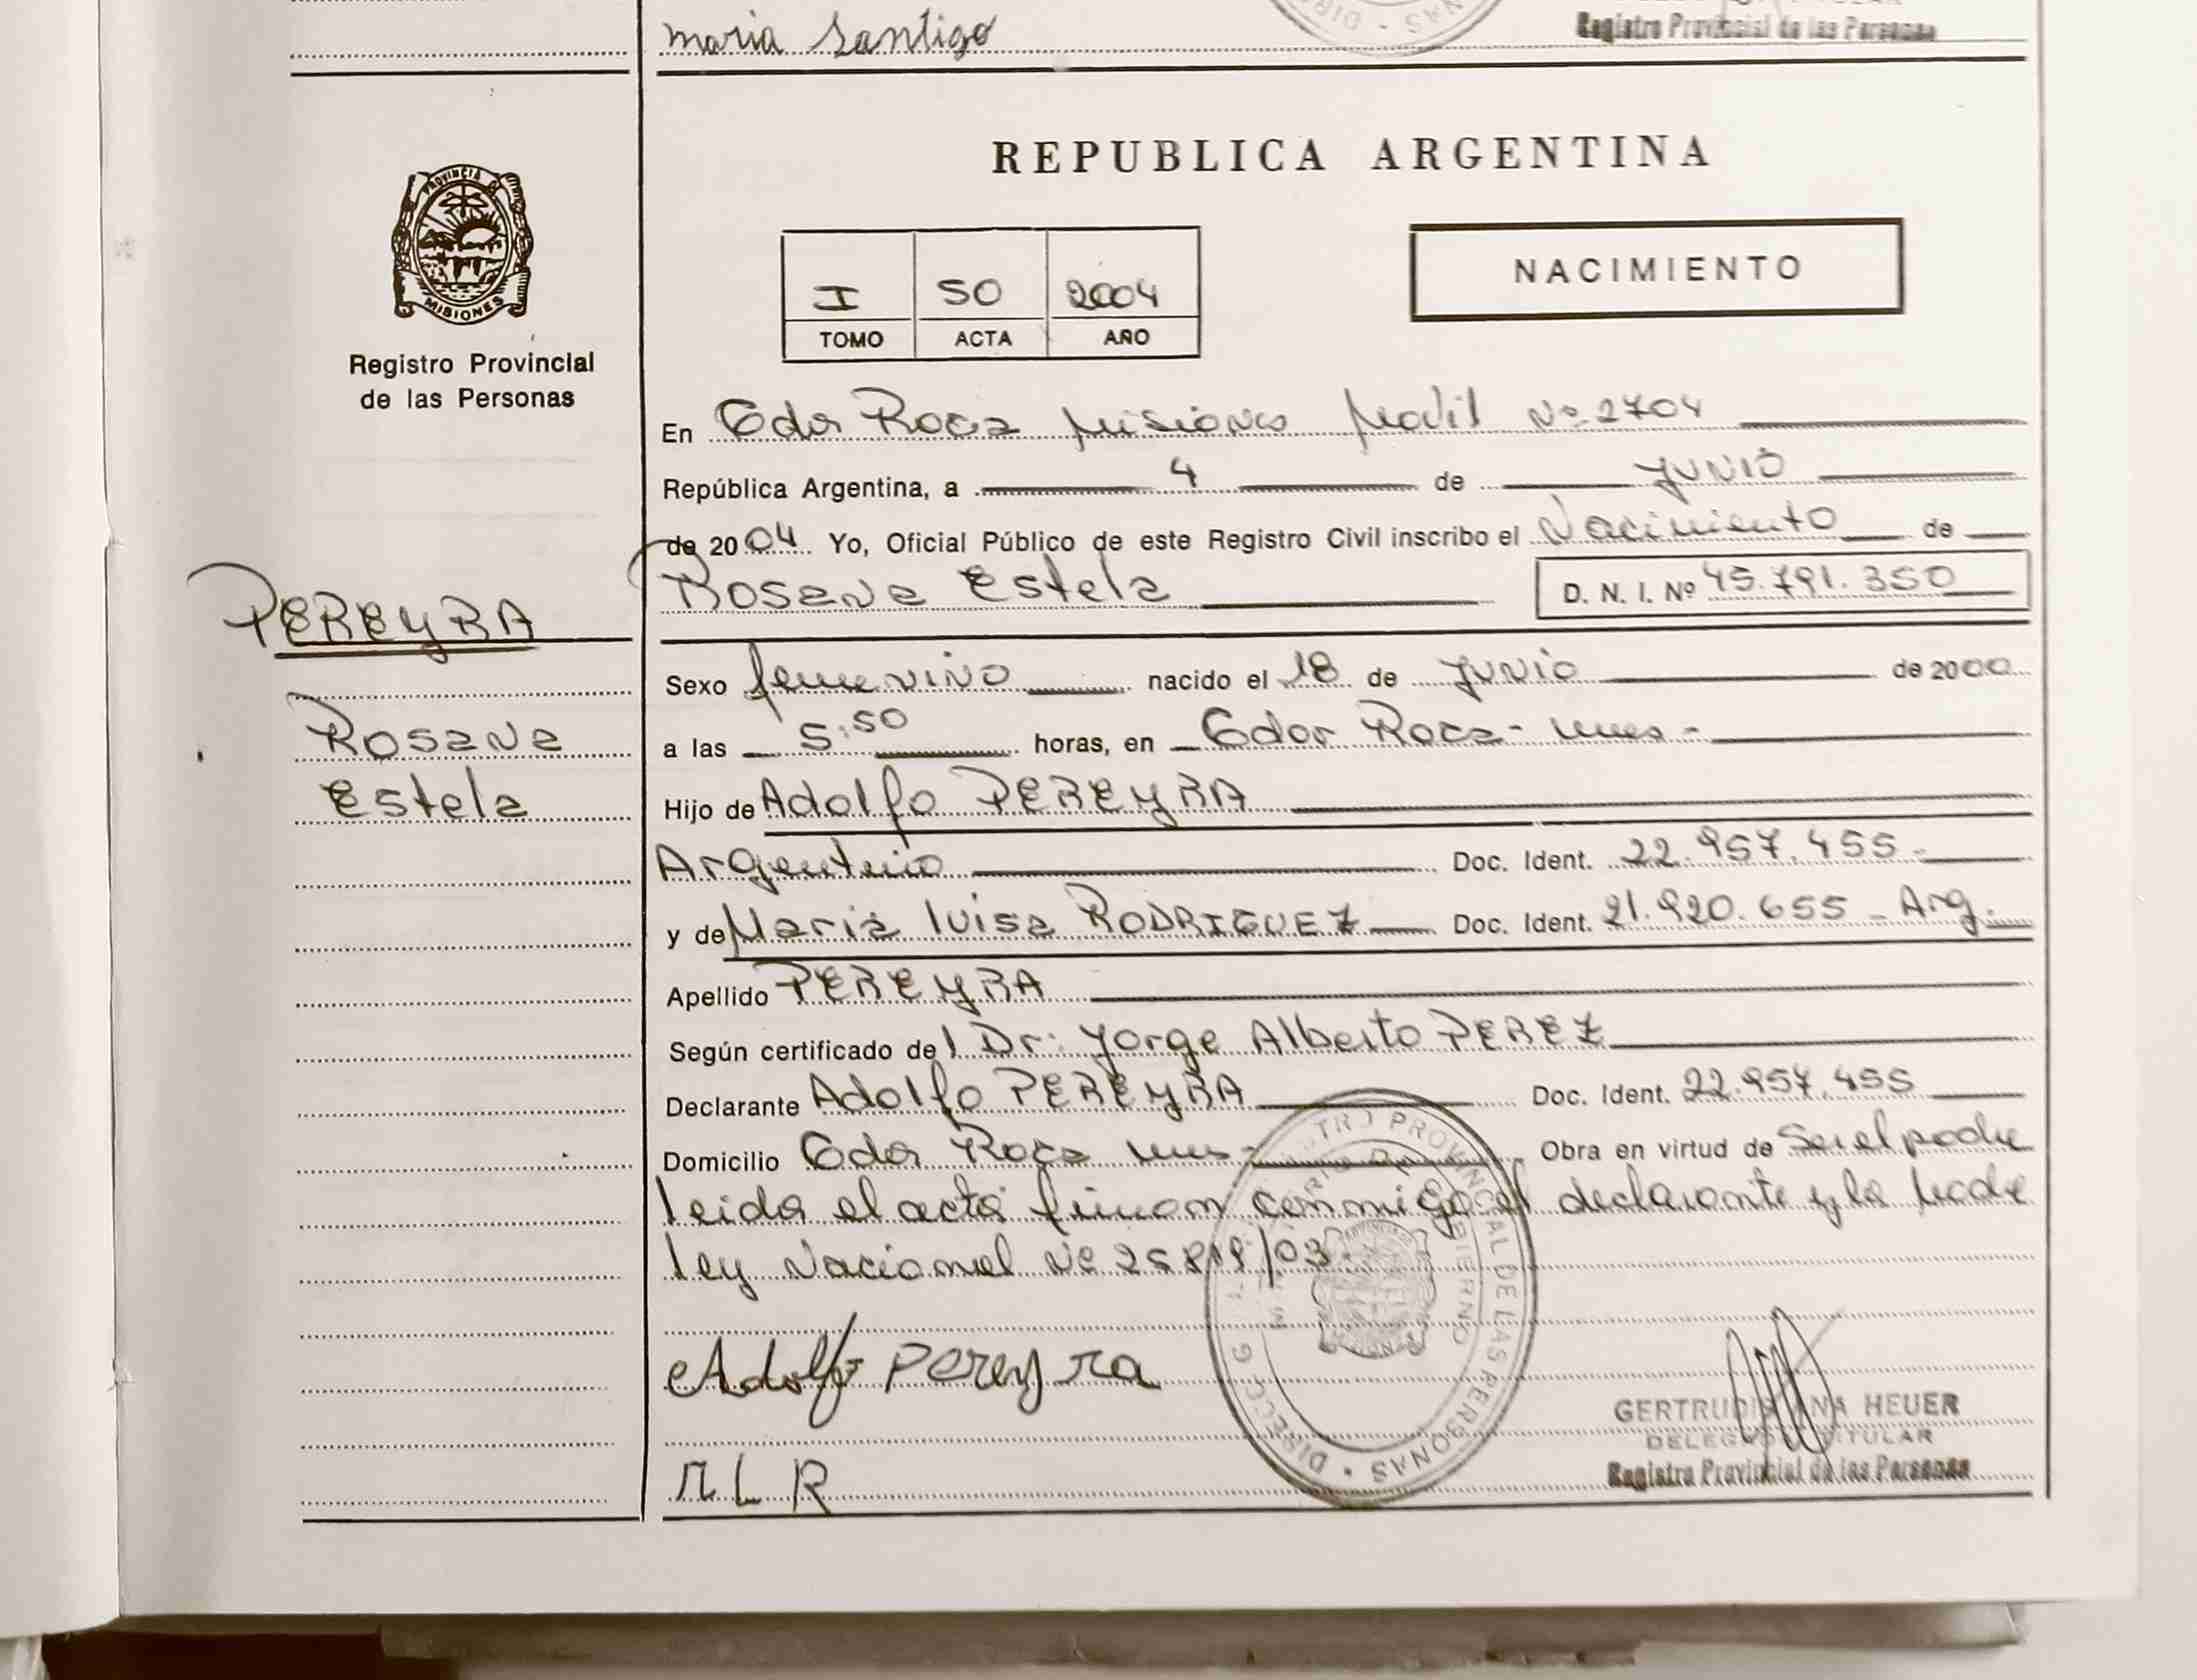 maria Santigo
Registro Provincial de las Personas
PROVINCIA DE
MISIONES
Registro Provincial
de las Personas
REPUBLICA ARGENTINA
I 50 2004
TOMO ACTA AÑO
NACIMIENTO
En Gdor Roca Misiones Movil Nº 2704
República Argentina, a 4 de JUNIO
de 2004 Yo, Oficial Público de este Registro Civil inscribo el Nacimiento de
Rosana Estela D. N. I. Nº 45.791.350
PEREYRA
Rosana
Estela
Sexo femenino nacido el 18 de JUNIO de 2000
a las 5:50 horas, en Gdor Roca - Mnes -
Hijo de Adolfo PEREYRA
Argentino Doc. Ident. 22.957.455.-
y de Maria Luisa RODRIGUEZ Doc. Ident. 21.920.655 - Arg.
Apellido PEREYRA
Según certificado del Dr: Jorge Alberto PEREZ
Declarante Adolfo PEREYRA Doc. Ident. 22.957.455
Domicilio Gdor Roca Mnes - Obra en virtud de Ser el padre
leida el acta firman conmigo el declarante y la Madre
ley Nacional Nº 25819/03.
Adolfo Pereyra
M L R
PROVINCIAL DE LAS PERSONAS
GERTRUDIS ANA HEUER
DELEGADO TITULAR
Registro Provincial de las Personas